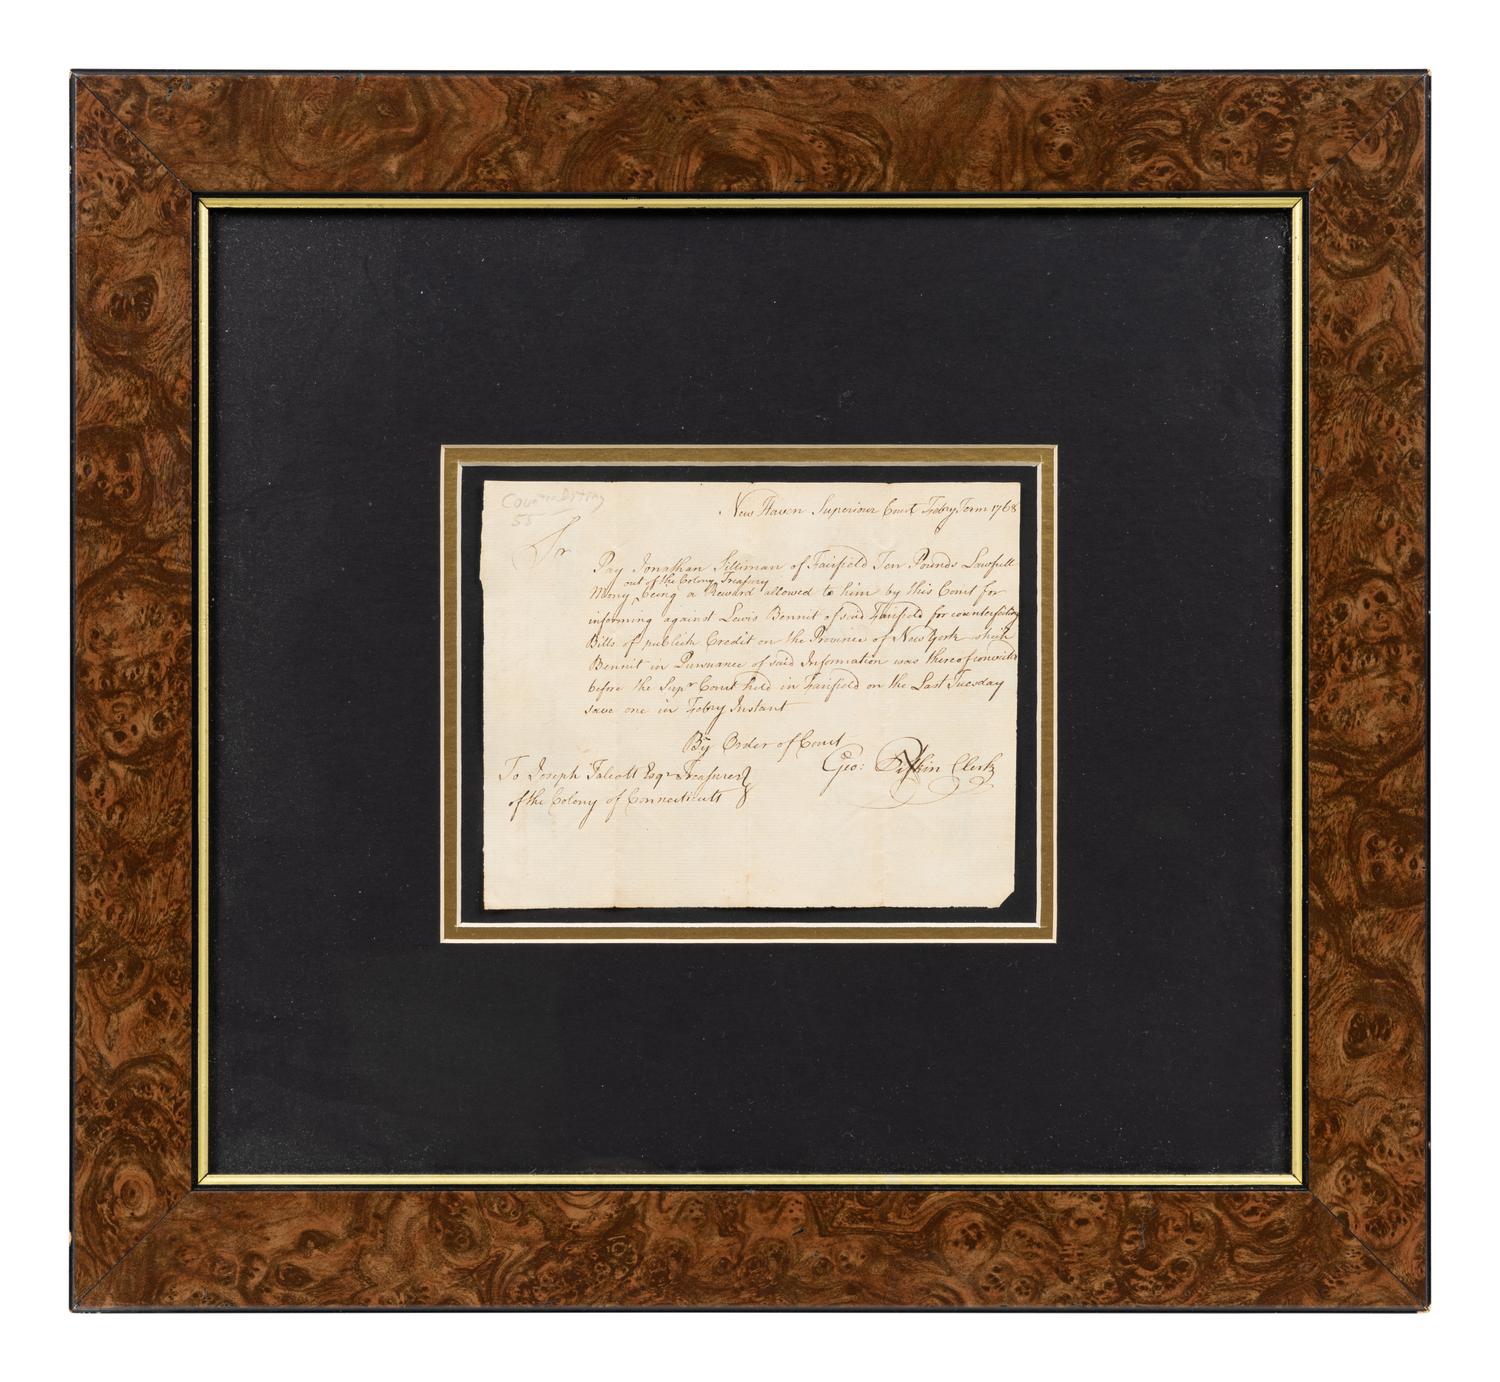 55
New Haven Superiour Court Febry Term 1768
Sr
Pay Jonathan Silliman of Fairfield Ten Pounds Lawfull
out of the Colony Treasury
Mony ‸ being a Reward allowed to him by this Court for
informing against Lewis Bennit of said Fairfield for counterfeiting
Bills of publick Credit on the Province of New York which
Bennit in Pursuance of said Information was thereof convicted
before the Supr Court held in Fairfield on the Last Tuesday
save one in Febry Instant
By Order of Court
Geo: Pitkin Clerk
To Joseph Talcott Esqr Treasurer
of the Colony of Connecticutt